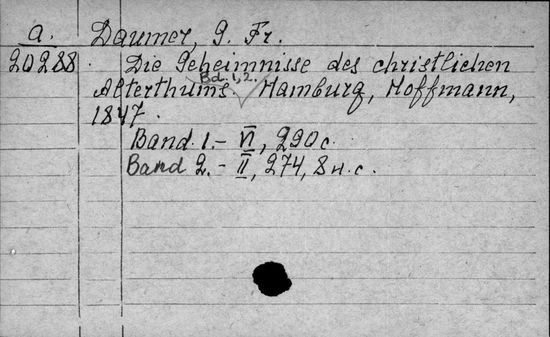 a. Daumer, G. Fr.
20288. Die Geheimnisse des christlichen
Bd. 1, 2.
Alterthums. Hamburg, Hoffmann,
1847.
Band 1. - VI, 290 c.
Band 2. - II, 274, 8 н. с.